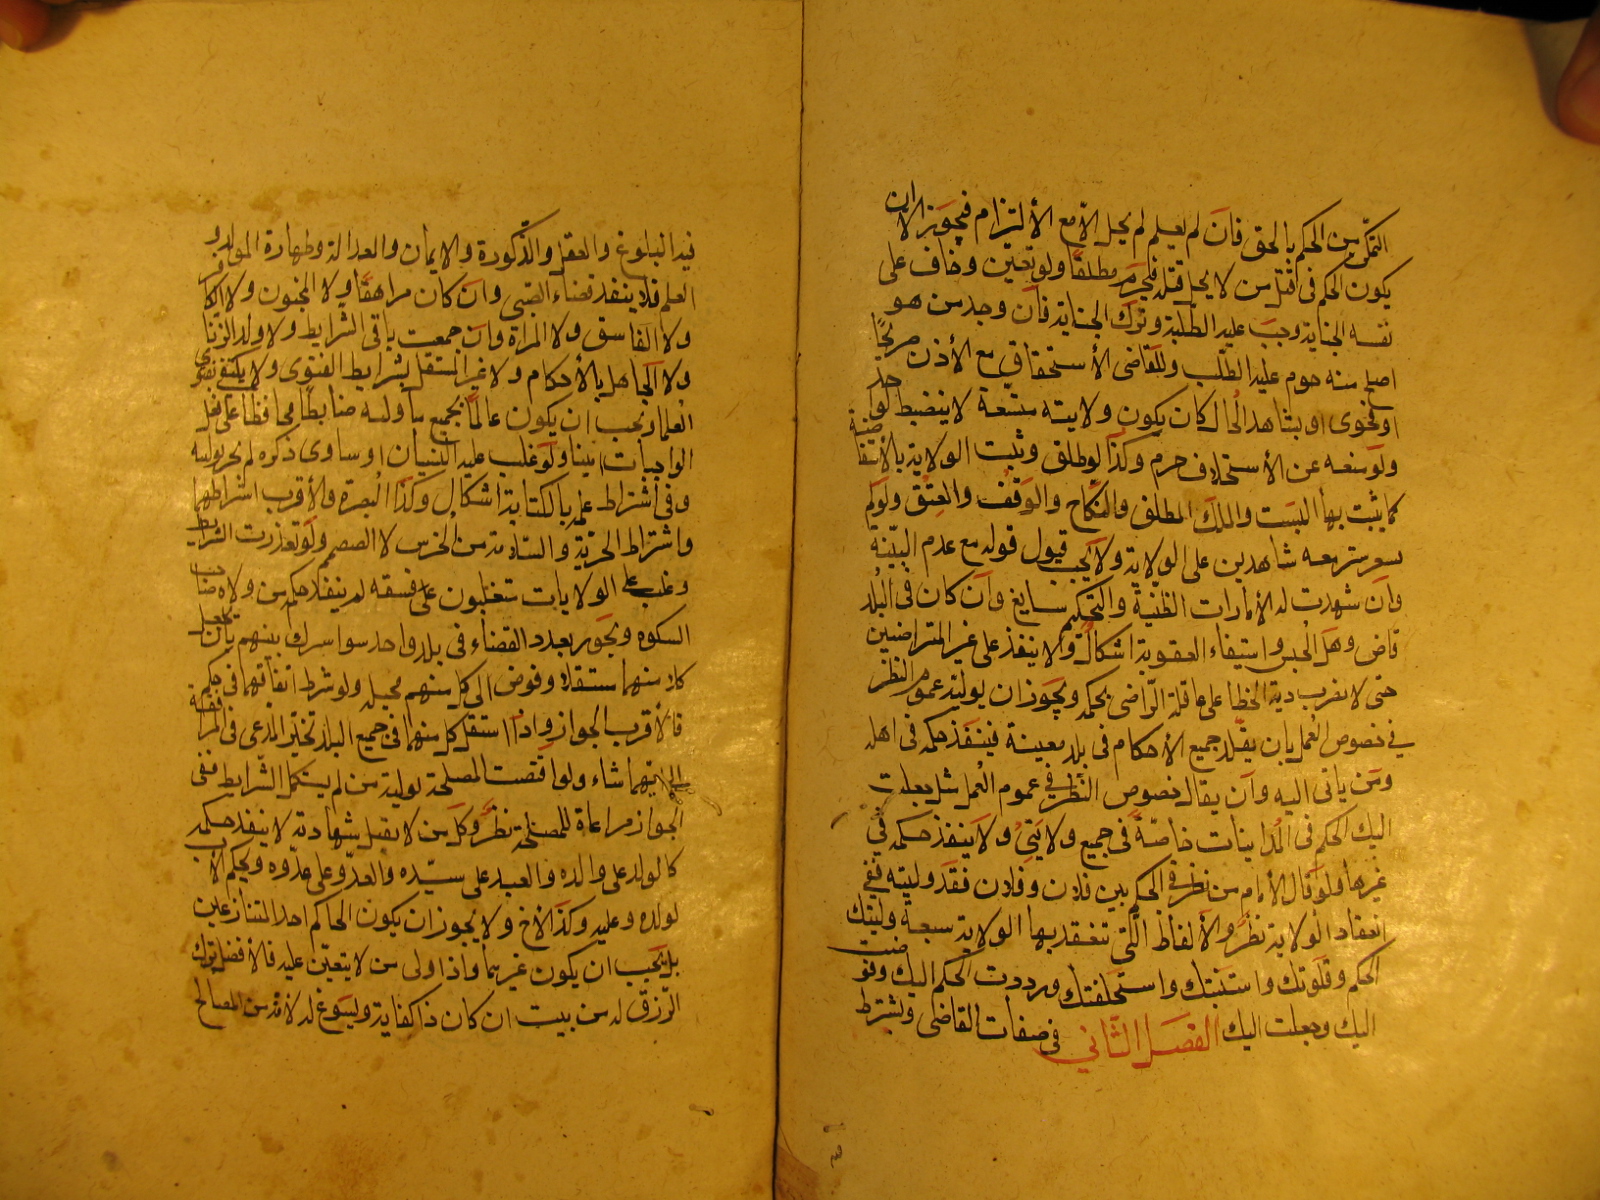 التمكن من الحكم بالحق فان لم يعلم لم يحل الا مع الالتزام فيجوز الا ان
يكون الحكم في قتل من لا يحل قتله فيحرم مطلقا ولو تعين وخاف على
نفسه الجناية وجب عليه الطلبة وترك الجناية فان وجد من هو
اصلح منه حرم عليه الطلب وللقاضي الاستخلاف مع الاذن صريحا
او فحوى او بشاهد الحال كان يكون ولايته متسعة لا ينضبط
ولو منعه عن الاستخلاف حرم وكذا لو طلق وثبت الولاية بالاستفاضة
كما يثبت بها النسب والملك المطلق والنكاح والوقف والعتق ولو لم
معه شاهدين على الولاية ولا يجب قبول قوله مع عدم البينة
وان شهدت له الامارات الظنية والتحكيم سايغ وان كان في البلد
قاض وهل الحبس واستيفاء العقوبة اشكال ولا ينفذ على غير المتراضيين
حتى لا يضرب دية الخطا على عاقلة الراضي بحكمه ويجوز ان يوليه عموم النظر
في خصوص العمل بان يقلد جميع الاحكام في بلد معينة فينفذ حكمه في اهله
ومن ياتي اليه وان يقال خصوص النظر في عموم العمل مثل جعلت
اليك الحكم في المداينات خاصة في جميع ولايتي ولا ينفذ حكمه في
غيرها ولو قال الامام من نظر في الحكم بين فلان وفلان فقد وليته ففي
انعقاد الولاية نظر والالفاظ التي تنعقد بها الولاية سبعة وليتك
الحكم وقلدتك واستنبتك واستخلفتك ورددت الحكم اليك وفوضت
اليك وجعلت اليك الفصل الثاني في صفات القاضي ويشترط
فيه البلوغ والعقل والذكورة والايمان والعدالة وطهارة المولد و
العلم فلا ينفذ قضاء الصبي وان كان مراهقا ولا المجنون ولا الكافر
ولا الفاسق ولا المراة وان جمعت باقي الشرايط ولا ولد الزنا
ولا الجاهل بالاحكام ولا غير المستقل بشرايط الفتوى ولا يكتفي بفتوى
العلماء ويجب ان يكون عالما بجميع ما وليه ضابطا محافظا على فعل
الواجبات امينا ولو غلب عليه النسيان او ساوى ذكره لم يجز توليه
وفي اشتراط علمه بالكتابة اشكال وكذا البصر والاقرب اشتراطهما
واشتراط الحرية والسلامة من الخرس لا الصمم ولو تعذرت الشرايط
وغلب على الولايات متغلبون على فسقه لم ينفذ حكم من ولاه صاحب
الشوكة ويجوز تعدد القضاء في بلد واحد سوا بينهم بان يجعل
كلا منهما مستقلا وفوض الى كل منهم محل ولو شرط اتفاقهما في حكم
فالاقرب الجواز واذا استقل كل منهما في جميع البلد تخير المدعي في المرافعة
الى ايهما شاء ولو اقتضت المصلحة تولية من لم يستكمل الشرايط ففي
الجواز مراعاة للمصلحة نظر وكل من لا يقبل شهادته لا ينفذ حكمه
كالولد على والده والعبد على سيده والعدو على عدوه ويحكم الاب
لولده وعليه وكذا الاخ ولا يجوز ان يكون الحاكم احد المتنازعين
بل يجب ان يكون غيرهما واذا ولي من لا يتعين عليه فالافضل ترك
الرزق له من بيت ان كان ذا كفاية ويسوغ له لانه من المصالح